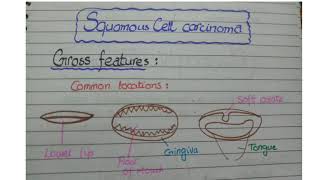 Squamous Cell carcinoma
Gross features :
Common locations :
Soft palate
Lower lip
Floor of Mouth
Gingiva
Tongue